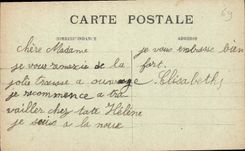 69
CARTE POSTALE
CORRESPONDANCE
ADRESSE
chère Madame
je vous remercie de la
jolie trousse a ouvrage
je recommence a tra
vailler chez tate Hélène
je suis a la
je vous embrasse bien
fort.
Elisabeth